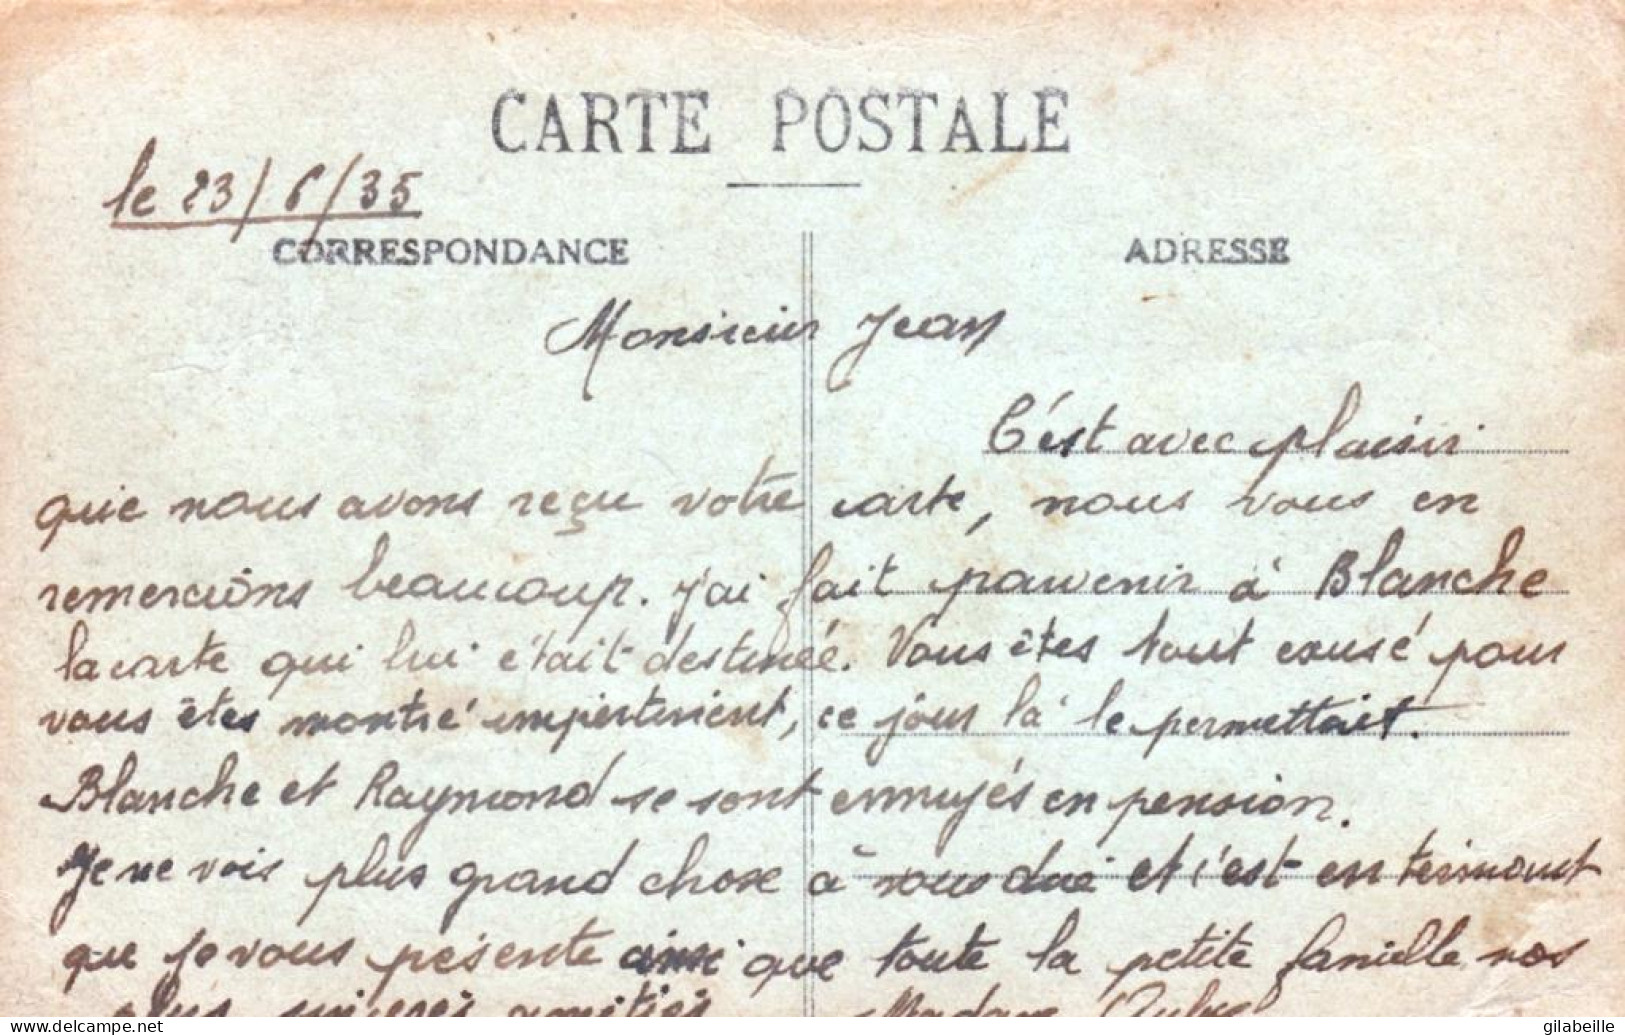 CARTE POSTALE
le 23/6/35
CORRESPONDANCE
ADRESSE
Monsieur Jean
C'est avec plaisir
que nous avons reçu votre carte, nous vous en
remercions beaucoup. J'ai fait parvenir à Blanche
la carte qui lui était destinée. Vous êtes tout exusé pour
vous êtes montré impertinent, ce jour là le permettait.
Blanche et Raymond se sont ennuyés en pension.
Je ne vois plus grand chose à vous dire et c'est en terminant
que je vous pésente ainsi que toute la petite famille nos
plus sincères amitiés Madame
delcampe.net
gilabeille